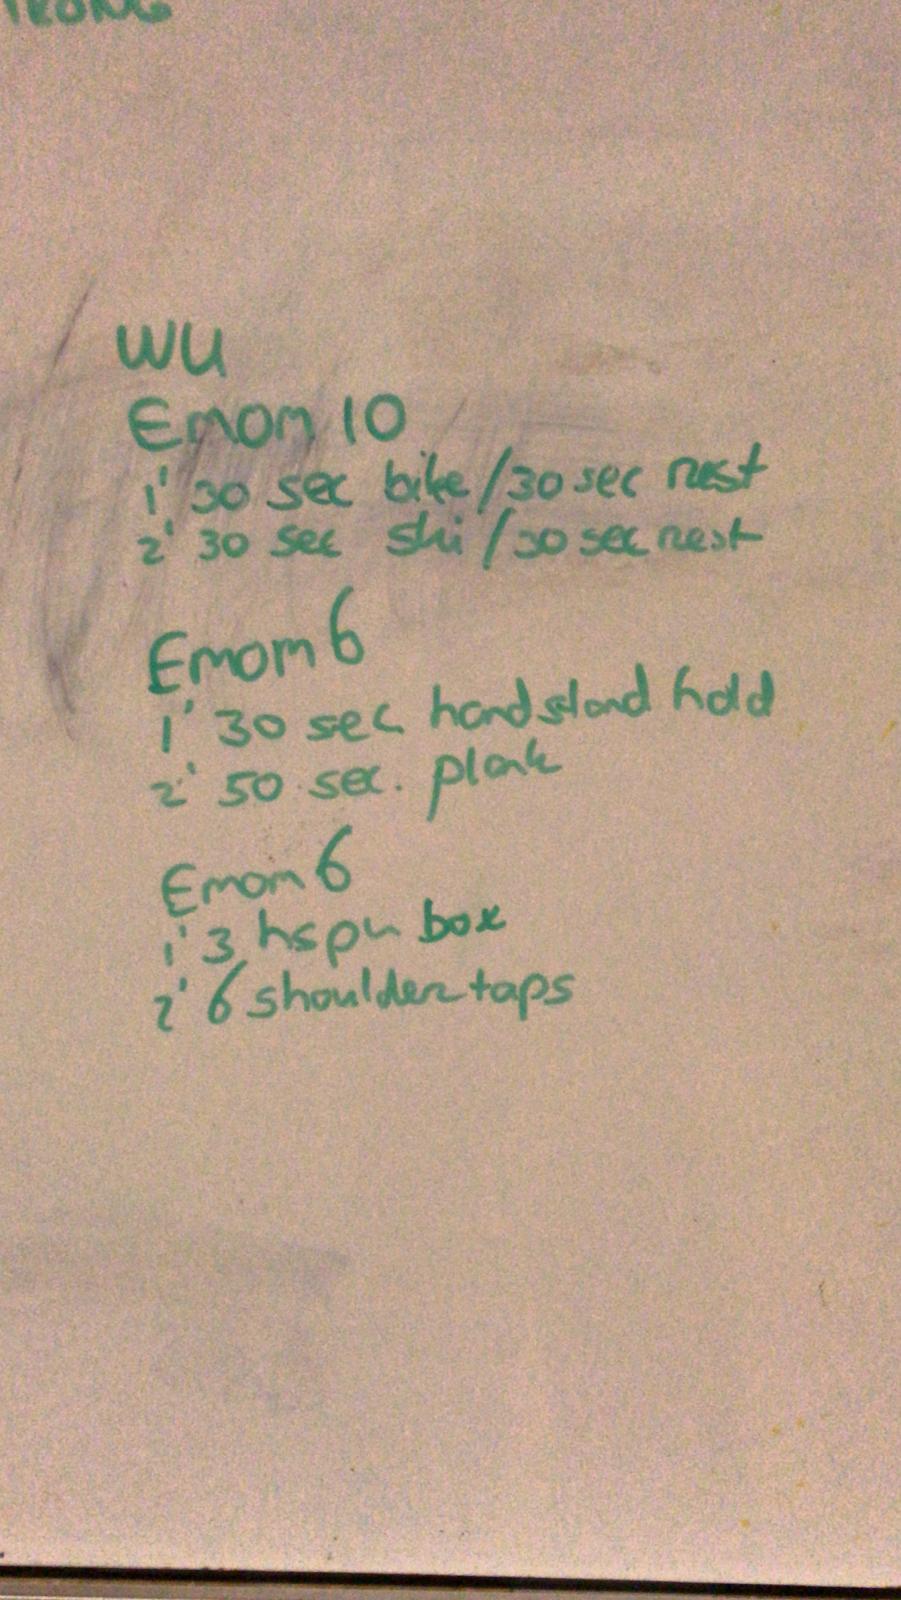 WU
Emom 10
1' 30 sec bike/30 sec rest
2' 30 sec ski/30 sec rest
Emom 6
1' 30 sec handstand hold
2' 50 sec. plank
Emom 6
1' 3 hspu box
2' 6 shoulder taps